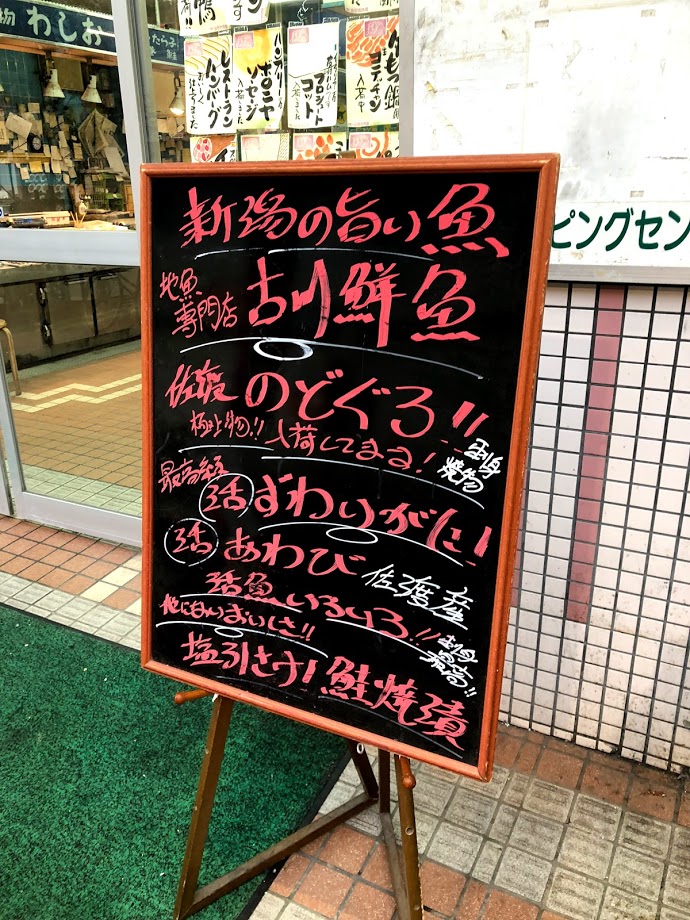 わしお
たらふ
レストラン
ハンバーグ
ボロニヤ
ソーセージ
入荷
ピングセン
新潟の旨い魚
地魚
専門店
古川鮮魚
佐渡のどぐろ!!
極上物!!入荷してまる!
刺身
焼物
最高級
活ずわいがに!
活あわび
佐渡産
活魚いろいろ!!
塩引さけ!鮭焼漬